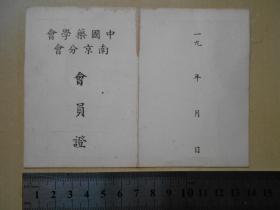 中國藥學會
南京分會
會員證
一九 年 月 日
1 2 3 4 5 6 7 8 9 10 11 12 13 14 15